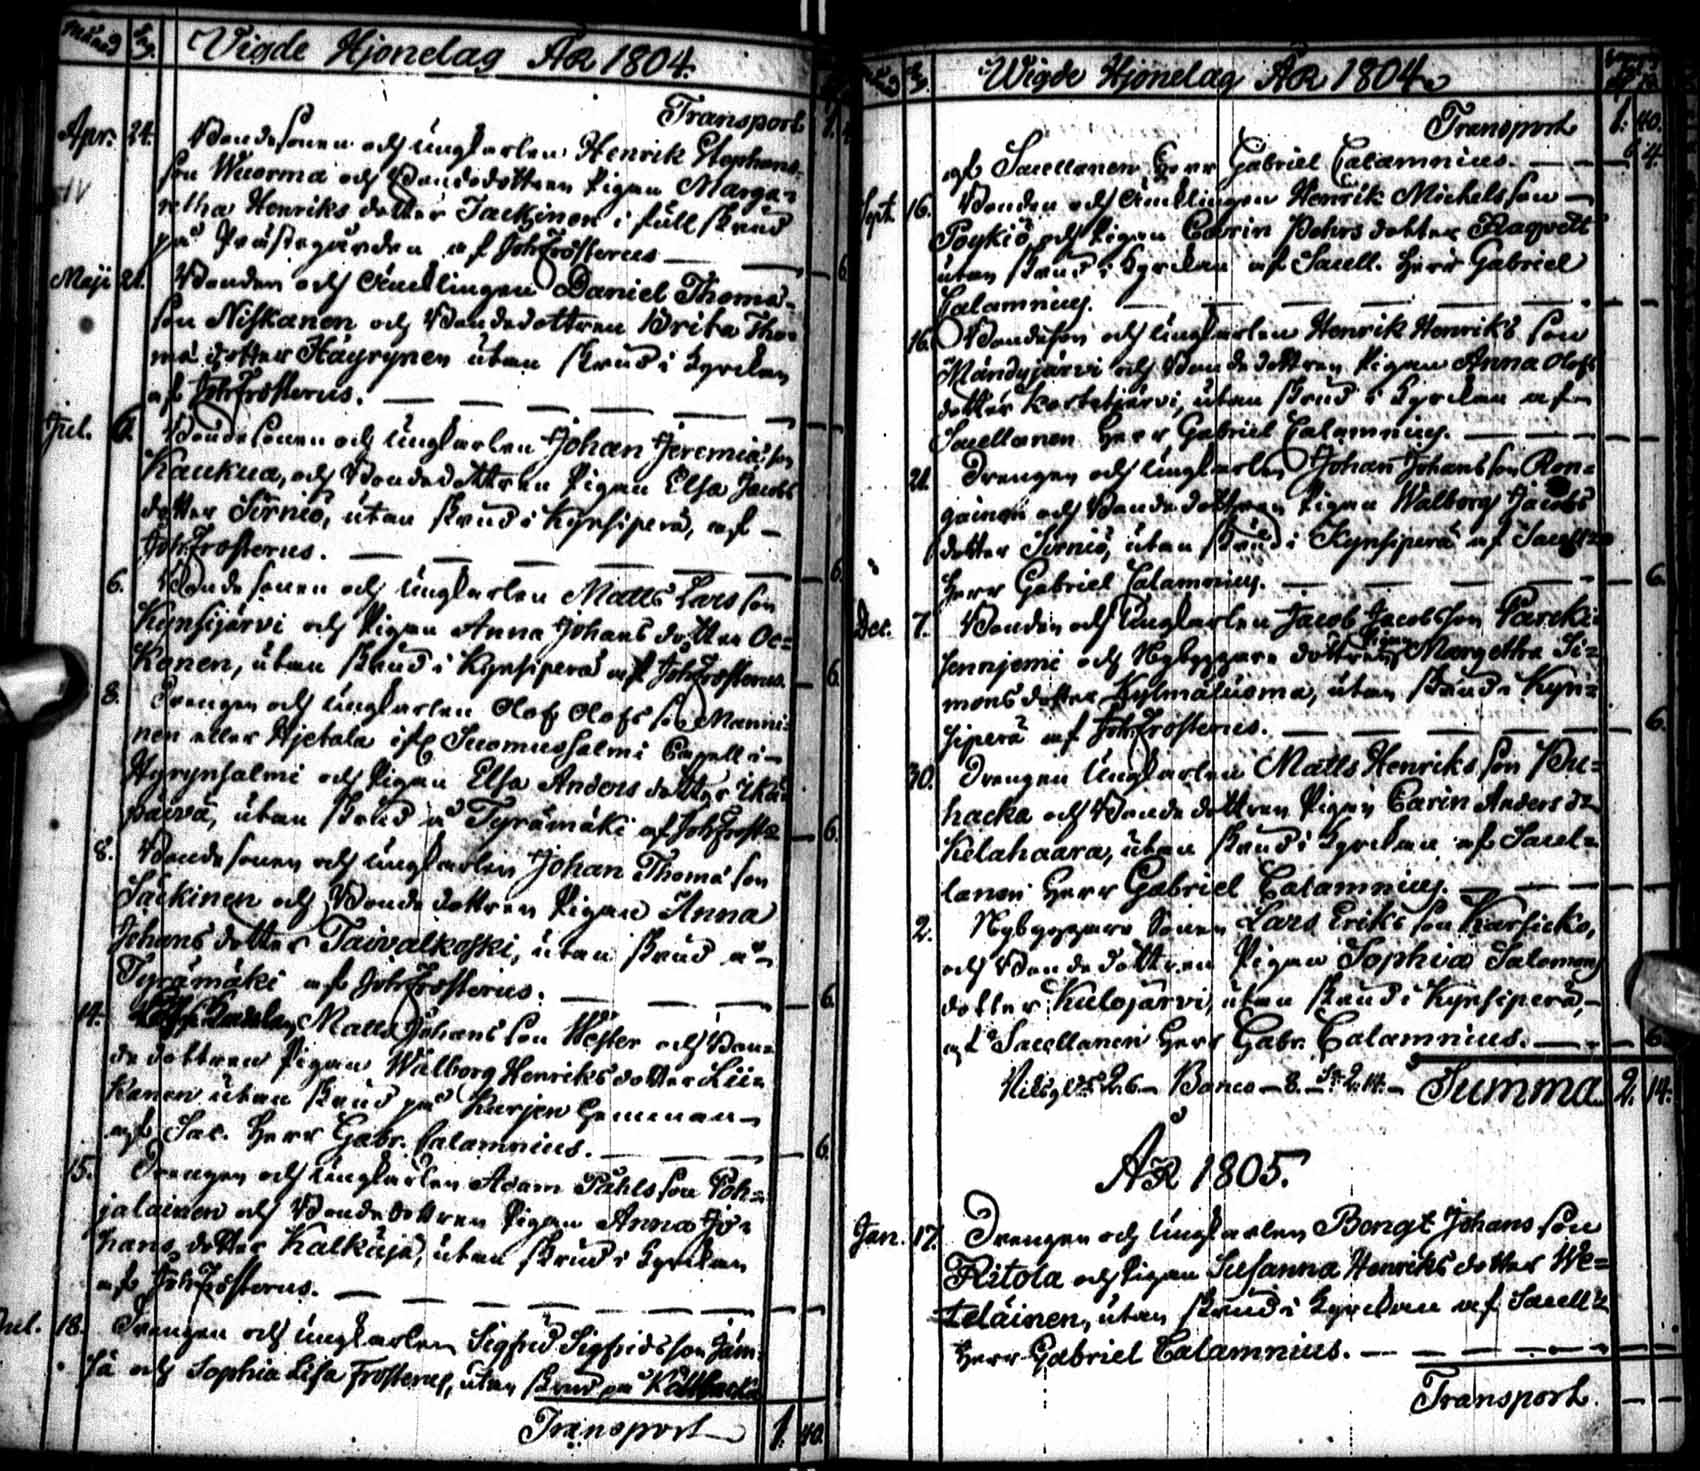 Månad Dag. Vigde Hjonelag År 1804.
Transport 1.
Apr. 24. Bondesonen och Ungkarlen Henrik Stephans-
son Wuorma och Bondedottren Pigan Marga-
retha Henriks dotter Jackinen i full skrud
på Prästegården af Joh Frosterus — — 6
Maji 21. Bonden och Enklingen Daniel Thomæ-
son Niskanen och Bondedottren Brita Tho-
mæ dotter Häyrynen utan skrud i Kyrckan
af Joh Frosterus. — — —
Jul. 6. Bondesonen och Ungkarlen Johan Jeremiæ son
Kaukua, och Bondedottren Pigan Elsa Jacobs
dotter Sirniö, utan skrud i Kynsiperä, af —
Joh Frosterus. — — — 6.
6. Bondesonen och Ungkarlen Matts Lars son
Kynsijärvi och Pigan Anna Johans dotter Oc-
konen, utan skrud i Kynsiperä af Joh Frosterus. — 6.
8. Drengen och Ungkarlen Olof Olofs son Manni-
nen eller Hjetala ifr Suomussalmi Capell i —
Hyrynsalmi och Pigan Elsa Anders dotter Ikä-
päivä, utan skrud å Tyrämäki af Joh Frost — 6.
8. Bondesonen och Ungkarlen Johan Thomæ son
Säckinen och Bondedottren Pigan Anna
Johans dotter Taivalkoski, utan skrud å —
Tyrämäki af Joh Frosterus. — — — 6.
14. Matts Johans son Wester och Bon-
dedottren Pigan Walborg Henriks dotter Lii-
kanen utan skrud på Kurjen Hemman —
af Sac. Herr Gabr. Calamnius. — — 6.
15. Drengen och Ungkarlen Adam Påhls son Poh-
jalainen och Bondedottren Pigan Anna Jo-
hans dotter Kalkäjä, utan skrud i Kyrckan
af Joh Frosterus. — — —
Jul. 18. Drengen och Ungkarlen Sigfrid Sigfrids son Jäm-
sä och Sophia Lisa Frosterus, utan skrud på
Transport 1. 40.
Wigde Hjonelag År 1804
Transport 1. 40.
af Sacellanen Herr Gabriel Calamnius. — — 4.
Sept. 16. Bonden och Enklingen Henrik Michels son —
Poykiö och Pigan Carin Pehrs dotter Ragvett
utan skrud i Kyrckan af Sacell. Herr Gabriel
Calamnius. — — —
16. Bondeson och Ungkarlen Henrik Henriks son
Mändyjärvi och Bondedottren Pigan Anna Olofs
dotter Kostetjervi, utan skrud i Kyrckan af —
Sacellanen Herr Gabriel Calamnius. — — —
21. Drengen och Ungkarlen Johan Johans son Ron-
gainen och Bondedottren Pigan Walborg Jacobs
dotter Sirniö, utan skrud i Kynsiperä af
Herr Gabriel Calamnius. — — — 6.
Dec. 7. Bonden och Ungkarlen Jacob Jacobs son
och Nybyggare dottren Pigan Margetha Si-
mons dotter Kylmäluoma, utan skrud i Kyn-
siperä af Joh Frosterus. — — — 6.
30. Drengen Ungkarlen Matts Henriks son Pu-
hacka och Bondedottren Pigan Carin Anders dr
Kelahaara, utan skrud i Kyrckan af Sacel-
lanen Herr Gabriel Calamnius. — — —
2. Nybyggare Sonen Lars Eriks son Karsicko,
och Bondedottren Pigan Sophia Salomons
dotter Kulojärvi, utan skrud i Kynsiperä, —
af Sacellanen Herr Gabr. Calamnius. — — 6
Banco Summa 2. 14.
År 1805.
Jan. 17. Drengen och Ungkarlen Bengt Johans son
Ritola och Pigan Susanna Henriks dotter We-
teläinen, utan skrud i Kyrckan af Sacell
Herr Gabriel Calamnius. — — —
Transport.